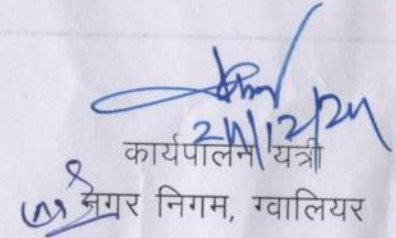 24/12/24
कार्यपालन यंत्री
नगर निगम, ग्वालियर